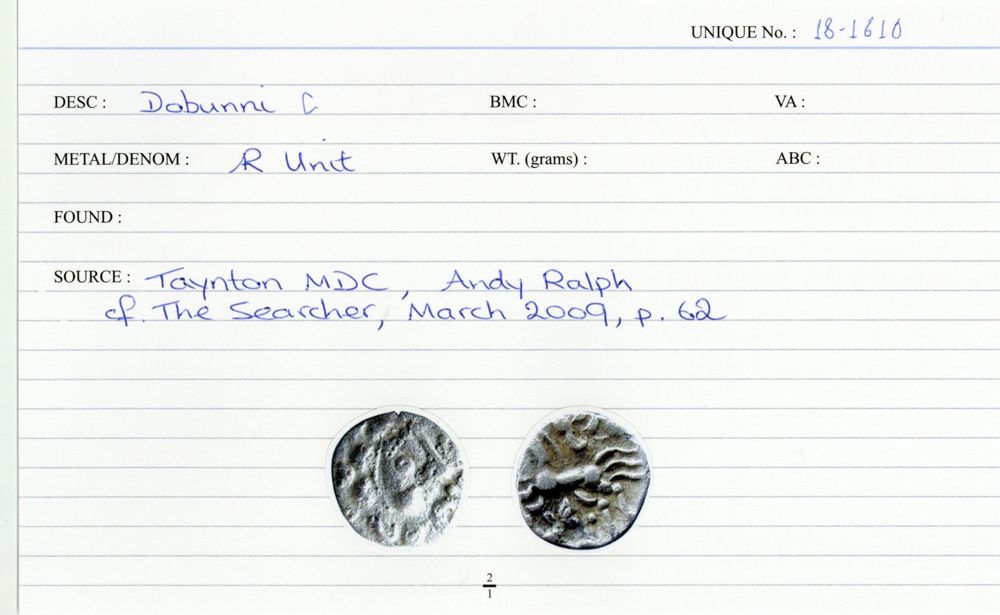 UNIQUE No. : 18-1610
DESC : Dobunni C BMC : VA :
METAL/DENOM : AR Unit WT. (grams) : ABC :
FOUND :
SOURCE : Taynton MDC, Andy Ralph
cf. The Searcher, March 2009, p. 62
2
1